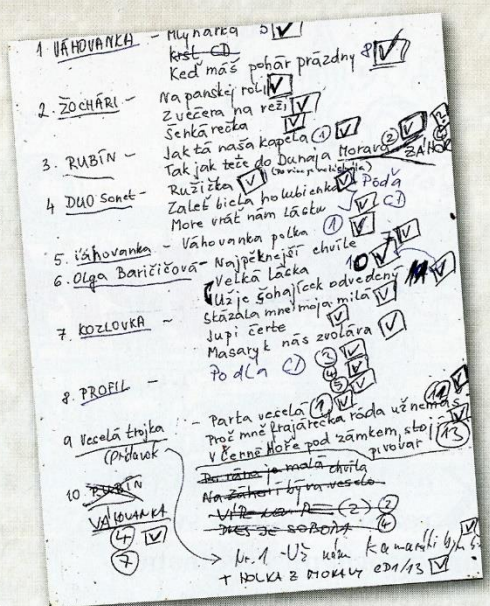 1. VÁHOVANKA - Mlynárka 5
krst CD
Keď máš pohár prázdny 8
2. ŽOCHÁRI - Na panskej roli
Z večera na reži
Šenkárečka
3. RUBÍN - Jak tá naša kapela ①
Tak jak teče do Dunaja Morava ②
4 DUO Sonet - Ružička
Zaleť biela holubienka Podľa
More vráť nám lásku CD
5. Váhovanka - Váhovanka polka ①
6. Olga Baričičová - Najpěknejší chvíle
Velká láska 10
Už je šohajíček odvedený
7. KOZLOVKA - Skázala mne moja milá
Jupi čerte
Masaryk nás zvoláva
8. PROFIL - Podľa CD ②
④
⑤
9 Veselá trojka - Parta veselá ①
(Prídavok Proč mně frajárečka ráda už nemáš
V Černé Hoře pod zámkem, stojí pivovar ⑬
Do rána je malá chvíla
10. RUBÍN Na Záhorí býva veselo
VÁHOVANKA
④ DNES JE SOBOTA ④
⑦
Nr. 1 - Už nám kamarádi
+ HOLKA Z MORAVY CD1/13